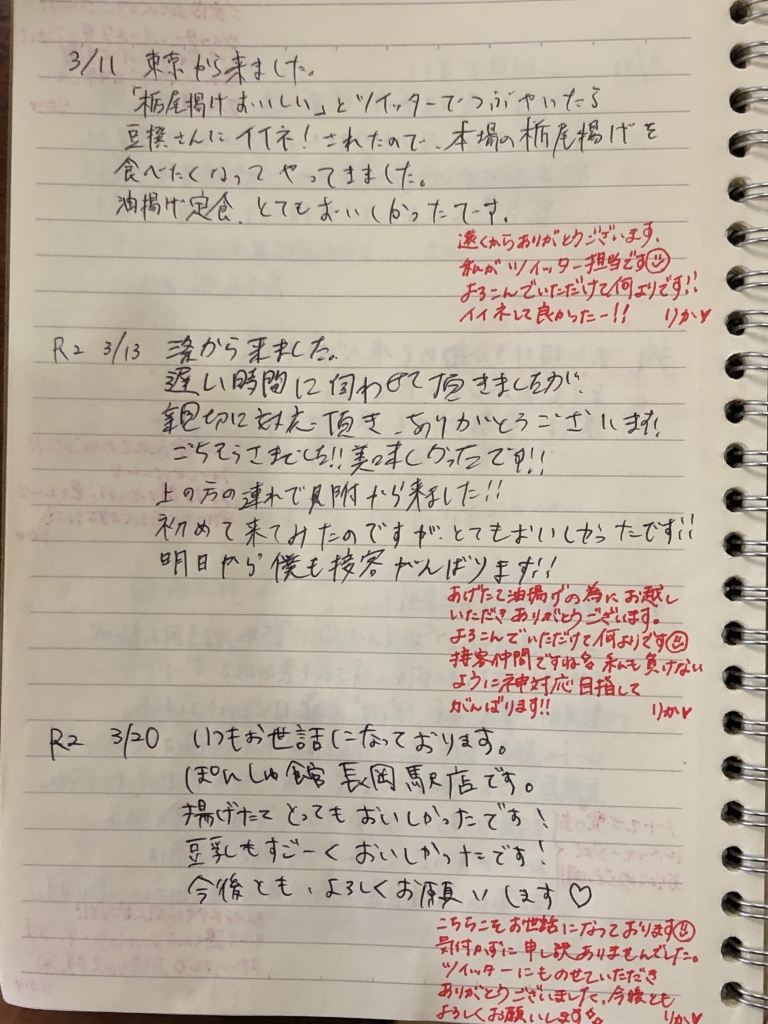 3/11 東京から来ました。
「栃尾揚げおいしい」とツイッターでつぶやいたら
豆撰さんにイイネ!されたので、本場の栃尾揚げを
食べたくなってやってきました。
油揚げ定食、とてもおいしかったでーす。
遠くからありがとうございます。
私がツイッター担当です
よろこんでいただけて何よりです!!
イイネして良かったー!! りか♥
R2 3/13 から来ました。
遅い時間に伺わせて頂きましたが、
親切に対応頂き、ありがとうございます!
ごちそうさまでした!!美味しかったです!!
上の方の連れで見附から来ました!!
初めて来てみたのですが、とてもおいしかったです!!
明日から僕も接客がんばります!!
あげたて油揚げの為にお越し
いただきありがとうございます。
よろこんでいただけて何よりです
接客仲間ですね 私も負けない
ように神対応目指して
がんばります!! りか♥
R2 3/20 いつもお世話になっております。
ぽんしゅ館長岡駅店です。
揚げたてとってもおいしかったです!
豆乳もすごーくおいしかったです!
今後とも、よろしくお願いします♡
こちらこそお世話になっております
気付かずに申し訳ありませんでした。
ツイッターにものせていただき
ありがとうございました、今後とも
よろしくお願いします。 りか♥